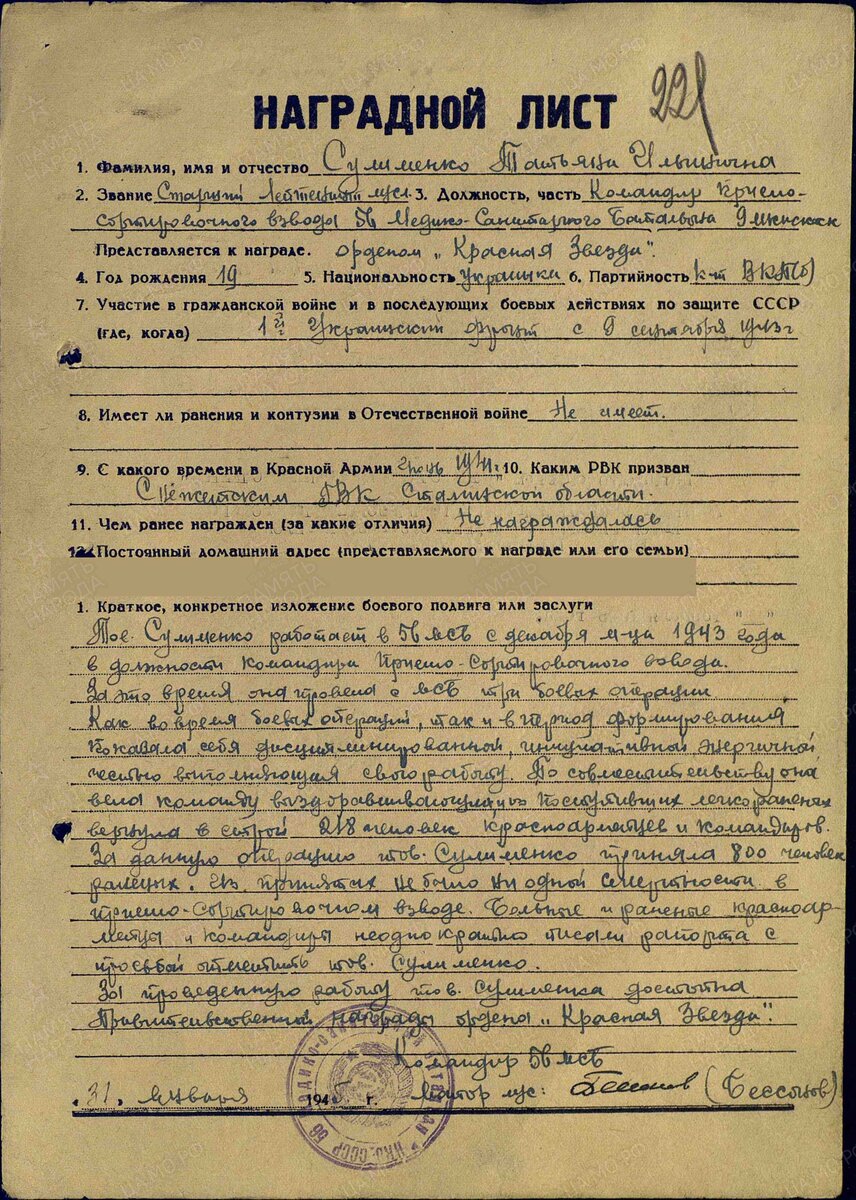 221
НАГРАДНОЙ ЛИСТ
1. Фамилия, имя и отчество Сулименко Татьяна Ильинична
2. Звание Старший Лейтенант м/сл. 3. Должность, часть Командир Приемо-
сортировочного взвода 56 Медико-Санитарного Батальона 9
Представляется к награде. орденом „Красная Звезда".
4. Год рождения 19 5. Национальность украинка 6. Партийность к-т ВКП(б)
7. Участие в гражданской войне и в последующих боевых действиях по защите СССР
(где, когда) 1й Украинский фронт с 9 сентября 1943 г
8. Имеет ли ранения и контузии в Отечественной войне Не имеет.
9. С какого времени в Красной Армии 1941 г. 10. Каким РВК призван
РВК Сталинской области.
11. Чем ранее награжден (за какие отличия) Не награждалась
12. Постоянный домашний адрес (представляемого к награде или его семьи)
1. Краткое, конкретное изложение боевого подвига или заслуги
Тов. Сулименко работает в 56 мсб с декабря м-ца 1943 года
в должности командира Приемо-Сортировочного взвода.
За это время она провела с мсб три боевых операции.
Как во время боевых операций, так и в период формирования
показала себя дисциплинированной, инициативной энергичной
честно выполняющая свою работу. По совместительству она
вела команду выздоравливающих из поступивших легкораненых
вернула в строй 218 человек красноармейцев и командиров.
За данную операцию тов. Сулименко приняла 800 человек
раненых. Из принятых не было ни одной смертности в
приемо-сортировочном взводе. Больные и раненые красноар-
мейцы и командиры неоднократно писали рапорта с
просьбой отметить тов. Сулименко.
За проведенную работу тов. Сулименко достойна
Правительственной награды ордена „Красная Звезда".
Командир 56 мсб
31. января 1945 г. Майор м/с: (Бессонов)